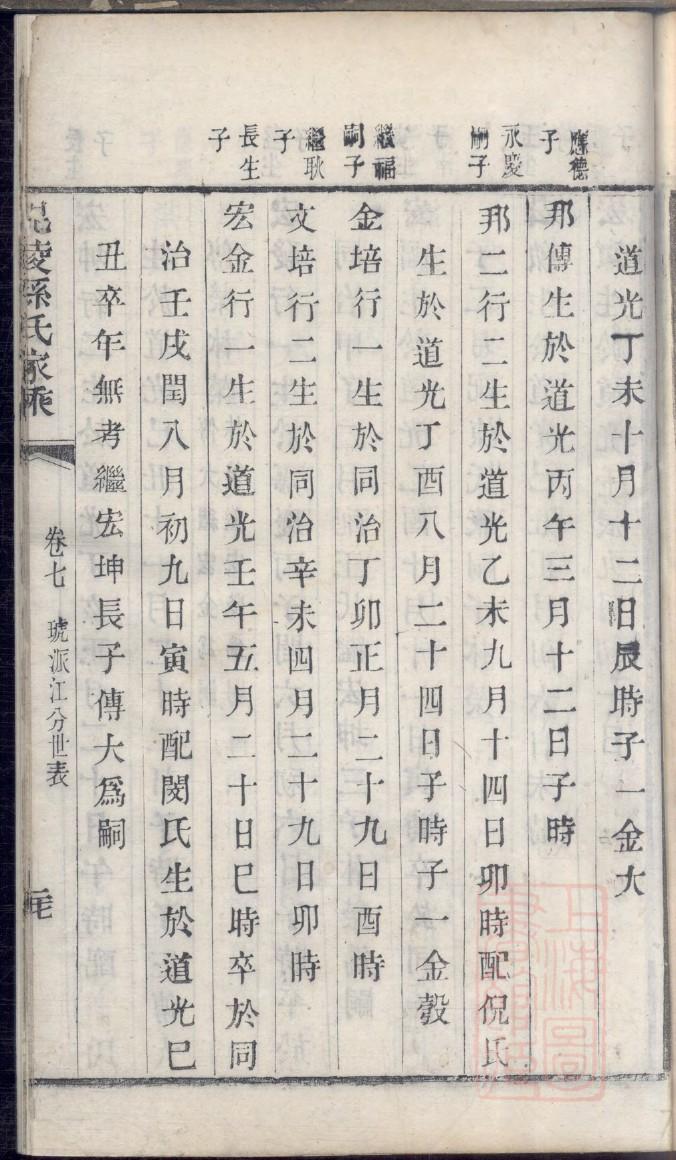 道光丁未十月十二日辰時子一金大
應德子
邦傳生於道光丙午三月十二日子時
永慶嗣子
邦二行二生於道光乙未九月十四日卯時配倪氏
生於道光丁酉八月二十四日子時子一金穀
繼福嗣子
金培行一生於同治丁卯正月二十九日酉時
繼耿子
文培行二生於同治辛未四月二十九日卯時
長生子
宏金行一生於道光壬午五月二十日巳時卒於同
治壬戌閏八月初九日寅時配閔氏生於道光巳
丑卒年無考繼宏坤長子傳大爲嗣
毘陵孫氏家乘
卷七 琥派江分世表
上海圖書館藏